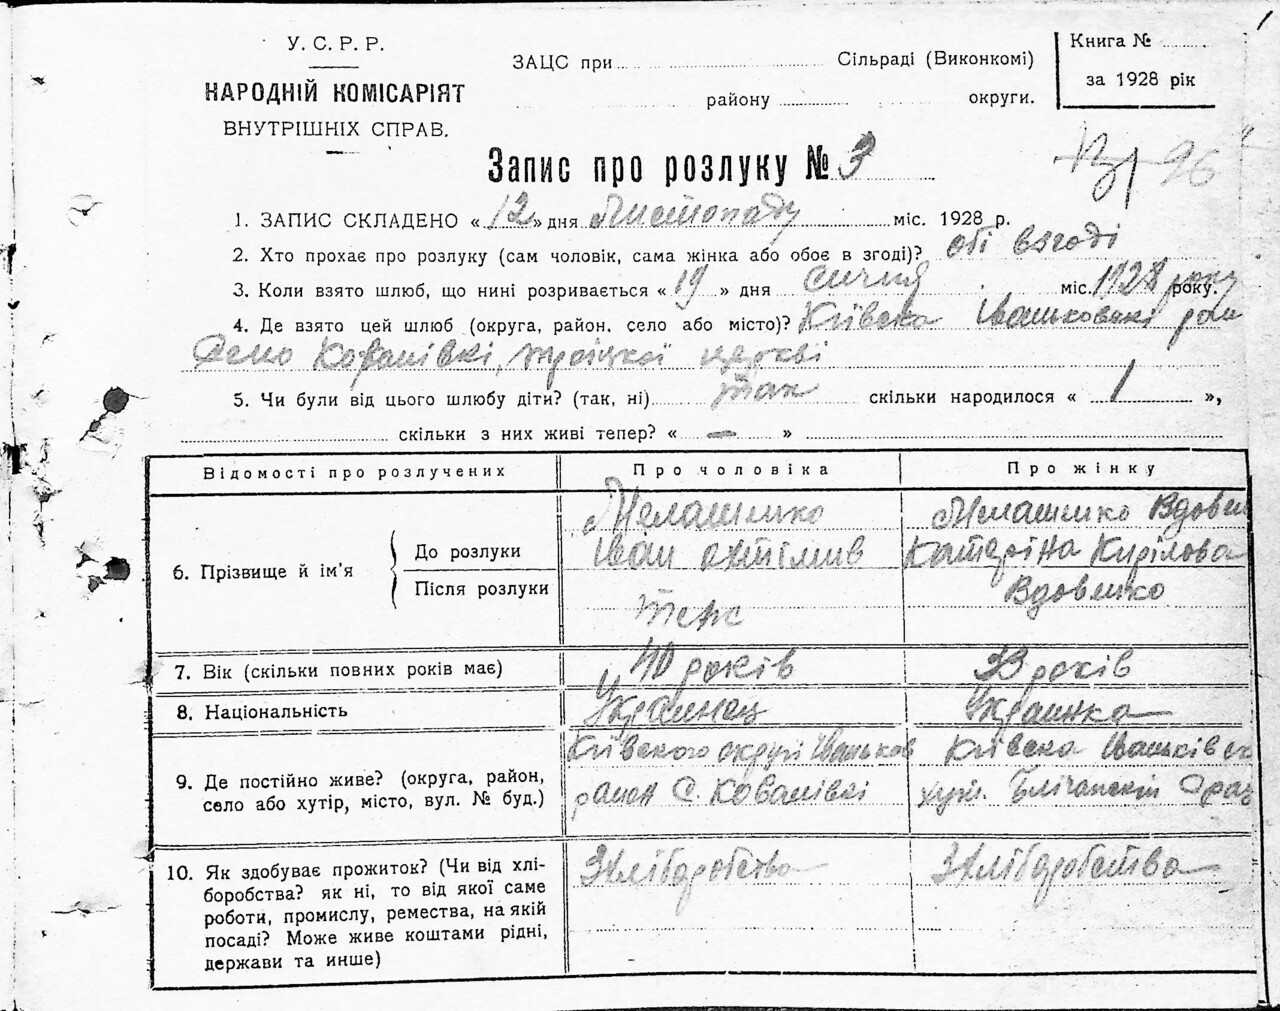 1
У. С. Р. Р.
НАРОДНІЙ КОМІСАРІЯТ
ВНУТРІШНІХ СПРАВ.
ЗАЦС при Сільраді (Виконкомі)
району округи.
Книга №
за 1928 рік
Запис про розлуку № 3
96
1. ЗАПИС СКЛАДЕНО «12» дня Листопаду міс. 1928 р.
2. Хто прохає про розлуку (сам чоловік, сама жінка або обоє в згоді)? обі взгоді
3. Коли взято шлюб, що нині розривається «19» дня сичня міс. 1928 року року.
4. Де взято цей шлюб (округа, район, село або місто)? Київска Іваньковскі рай
Село Ковалівкі, троїцкої церкві
5. Чи були від цього шлюбу діти? (так, ні) так скільки народилося « 1 »,
скільки з них живі тепер? « — »
Відомості про розлучених Про чоловіка Про жінку
6. Прізвище й ім'я
До розлуки
Після розлуки
Іван
Вдовен
Катеріна Кирілова
Вдовенко
7. Вік (скільки повних років має) 40 років 33 років
8. Національність Украинец Украинка
9. Де постійно живе? (округа, район,
село або хутір, місто, вул. № буд.)
Київского округі Іваньков
район С. Ковалівкі
Київска Іваньківск
хут.
10. Як здобуває прожиток? (Чи від хлі-
боробства? як ні, то від якої саме
роботи, промислу, ремества, на якій
посаді? Може живе коштами рідні,
держави та инше)
Зхліборобства
Зхліборобства